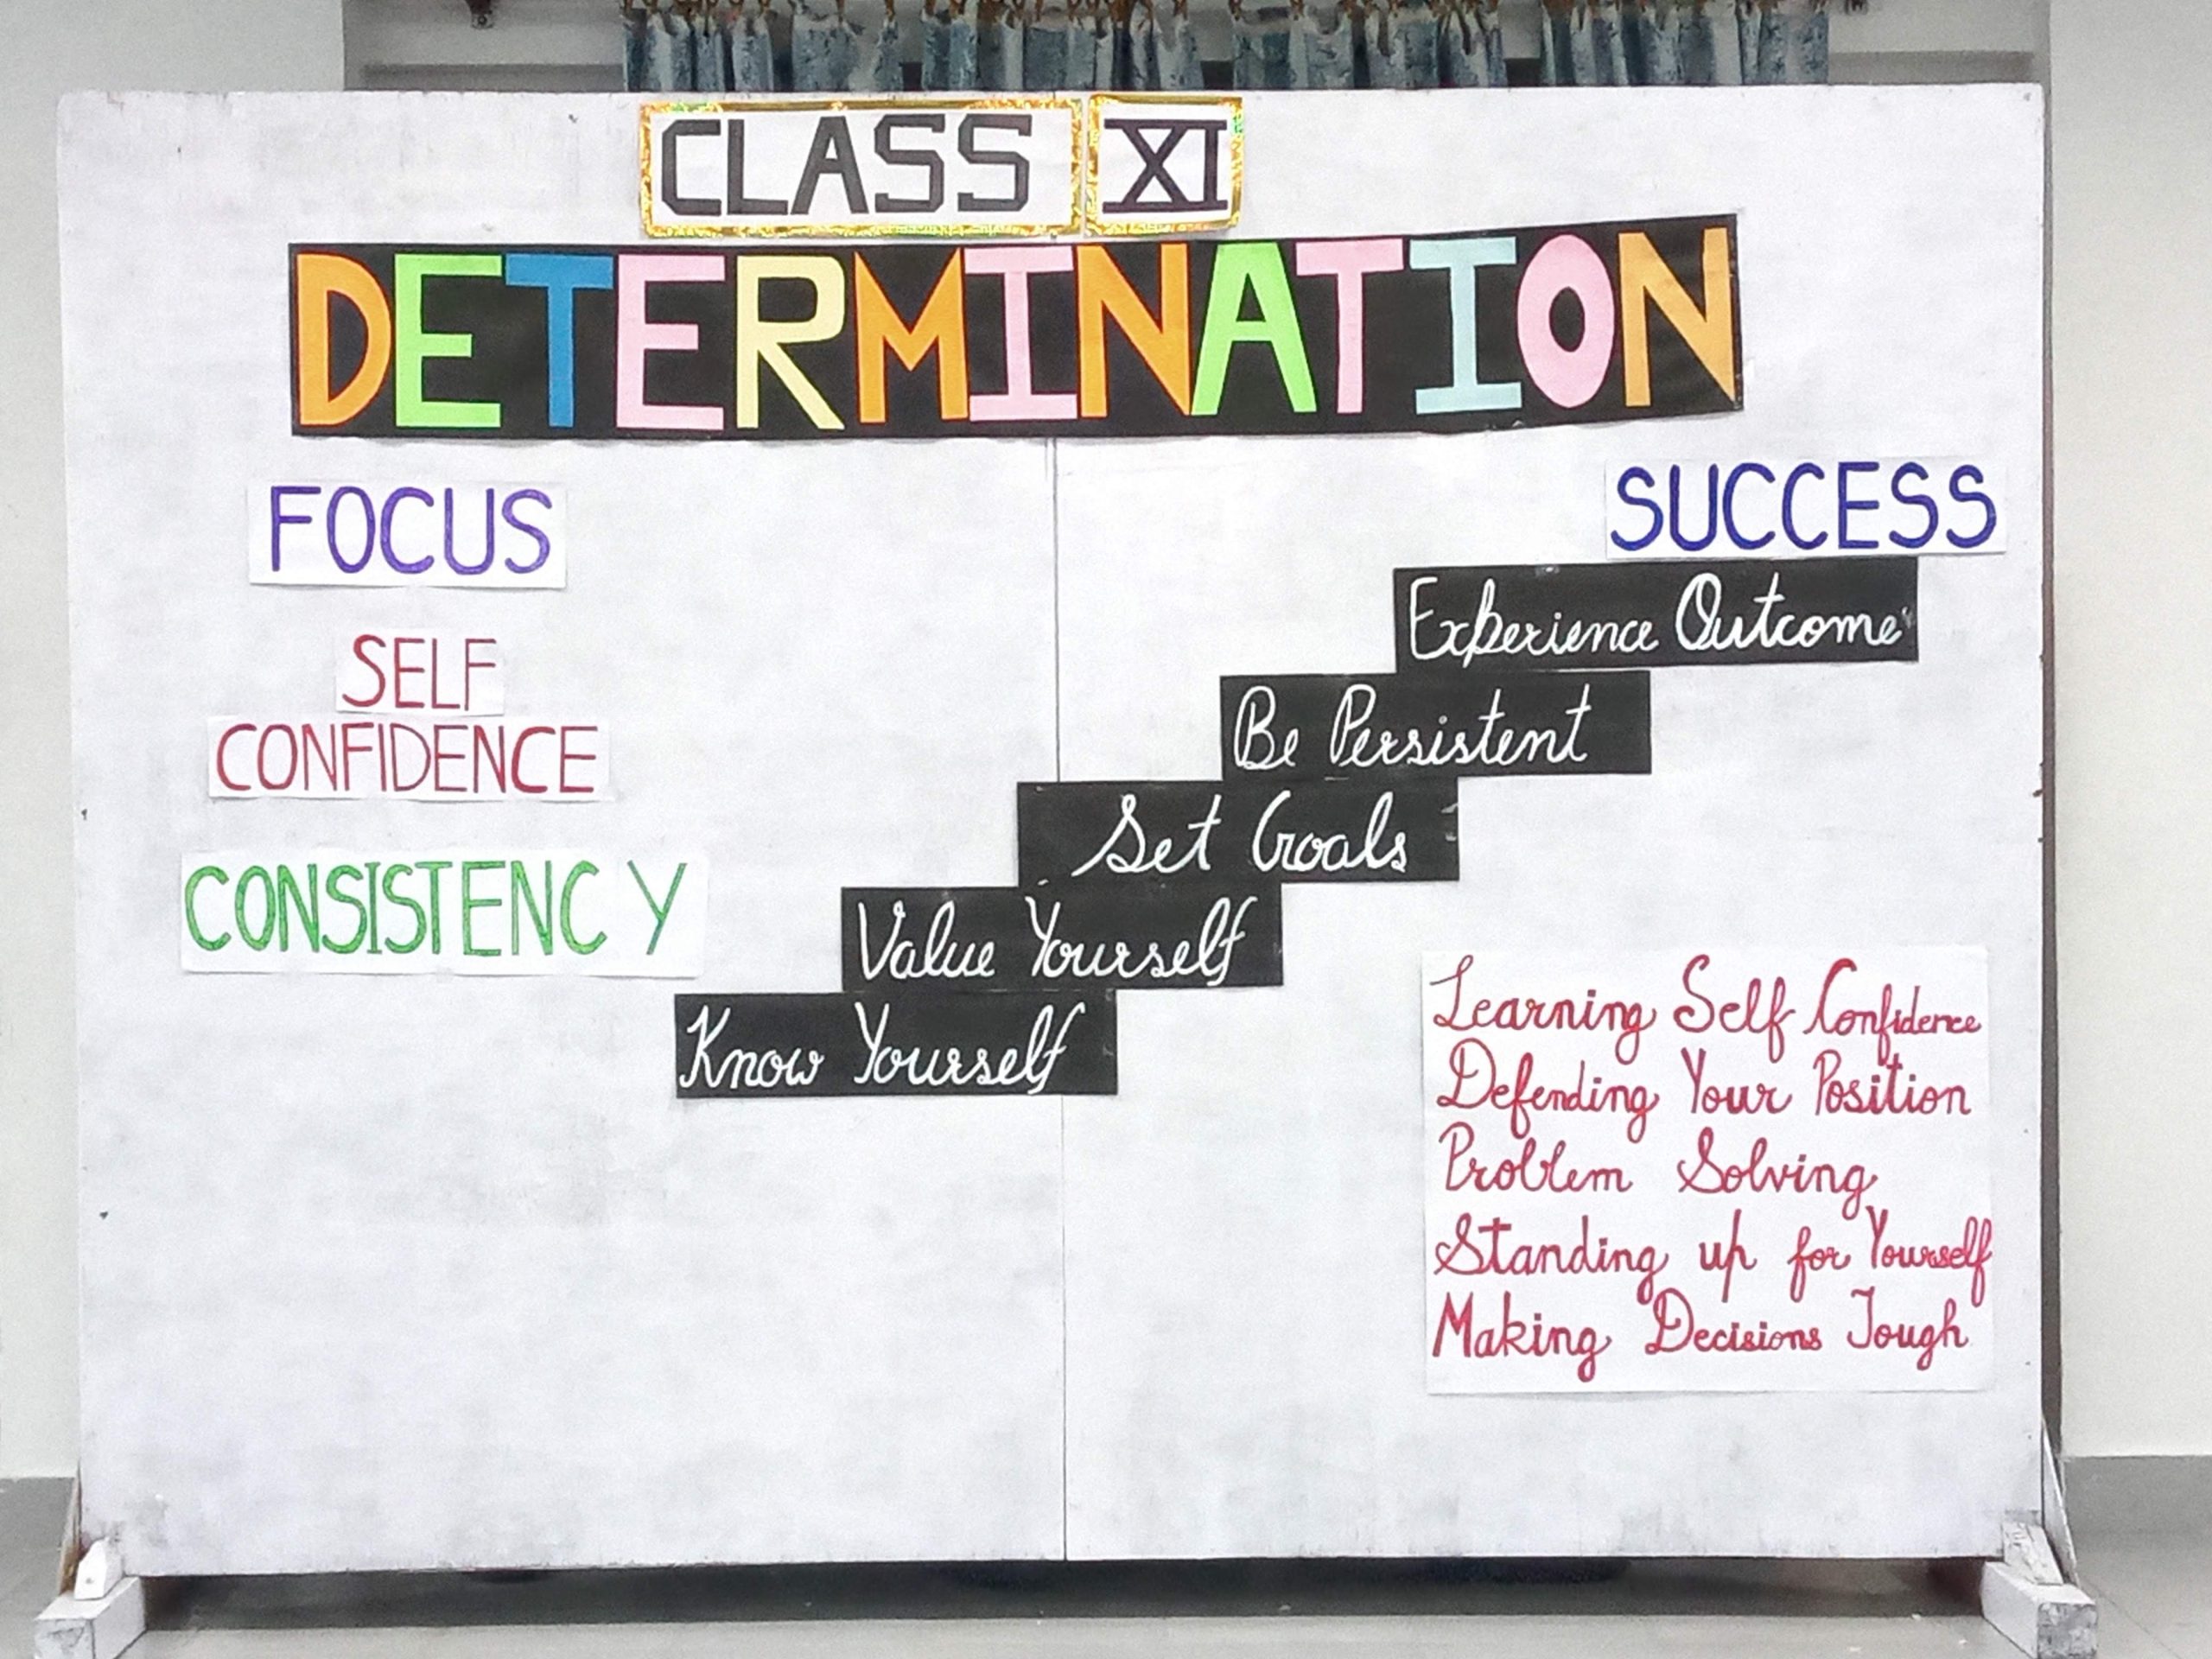 CLASS XI
DETERMINATION
FOCUS
SELF
CONFIDENCE
CONSISTENCY
SUCCESS
Experience Outcome
Be Persistent
Set Goals
Value Yourself
Know Yourself
Learning Self Confidence
Defending Your Position
Problem Solving
Standing up for Yourself
Making Decisions Tough